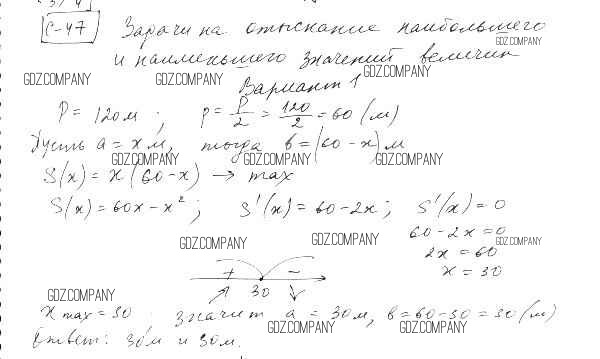 С-47 Задачи на отыскание наибольшего
GDZ.COMPANY
и наименьшего значений величин
GDZ.COMPANY GDZ.COMPANY GDZ.COMPANY
Вариант 1
P = 120м ; p = P/2 = 120/2 = 60 (м)
Пусть a = x м, тогда b = (60 - x) м
GDZ.COMPANY GDZ.COMPANY GDZ.COMPANY
S(x) = x(60-x) → max
S(x) = 60x - x² ; S'(x) = 60 - 2x ; S'(x) = 0
60 - 2x = 0
GDZ.COMPANY GDZ.COMPANY GDZ.COMPANY
2x = 60
x = 30
+ −
30
GDZ.COMPANY
x max = 30 значит a = 30м, b = 60 - 30 = 30 (м)
GDZ.COMPANY GDZ.COMPANY
Ответ: 30м и 30м.